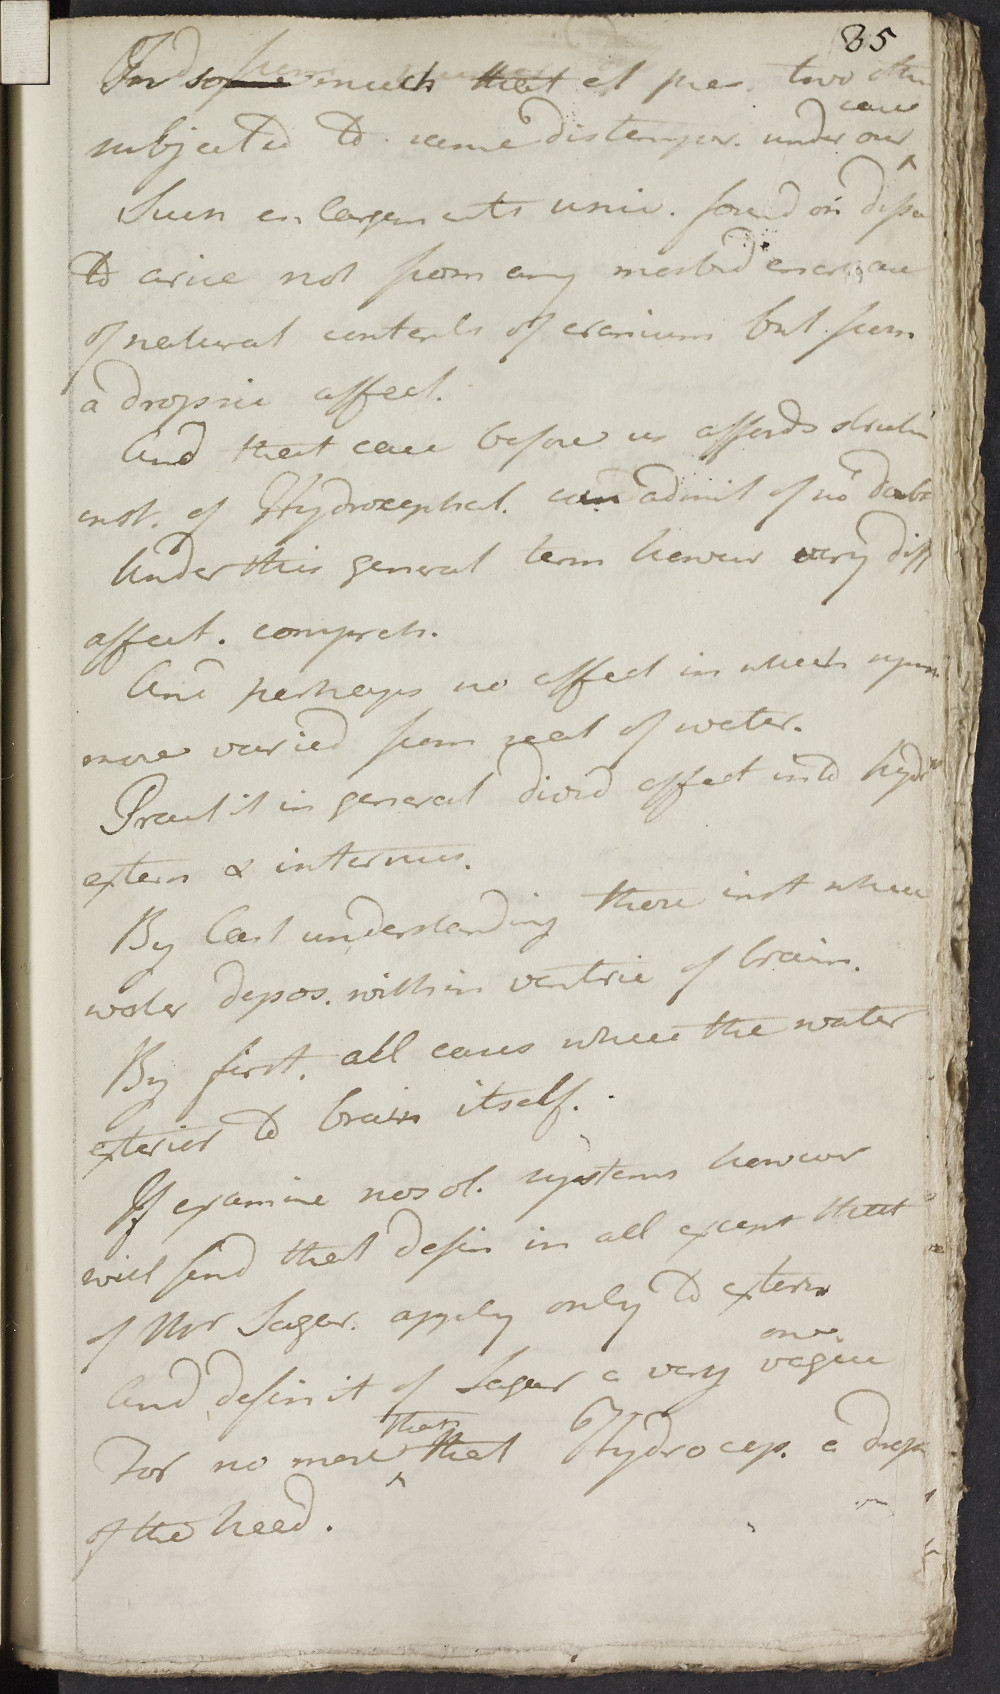 85
In so much that at pres. two other
subjected to same distemper. under our care
Such enlargements univ. found on disse
to arise not from any morbid increase
of natural contents of cranium but from
a dropsie affect.
And that case before us affords strikin
inst. of Hydrocephal. can admit of no doubt
Under this general term however very diff
affect. compreh.
And perhaps no affect in which
more varied from seat of water.
Practit in general divid affect into hydr
extern & internus.
By last understanding those inst where
water depos. within ventric of brain.
By first. all cases where the water
exterior to brain itself.
If examine nosol. systems however
will find that defin in all except that
of Mr Sagar. apply only to extern
And definit of Sagar a very vague one
For no more than that Hydrocep. a drops
of the head.